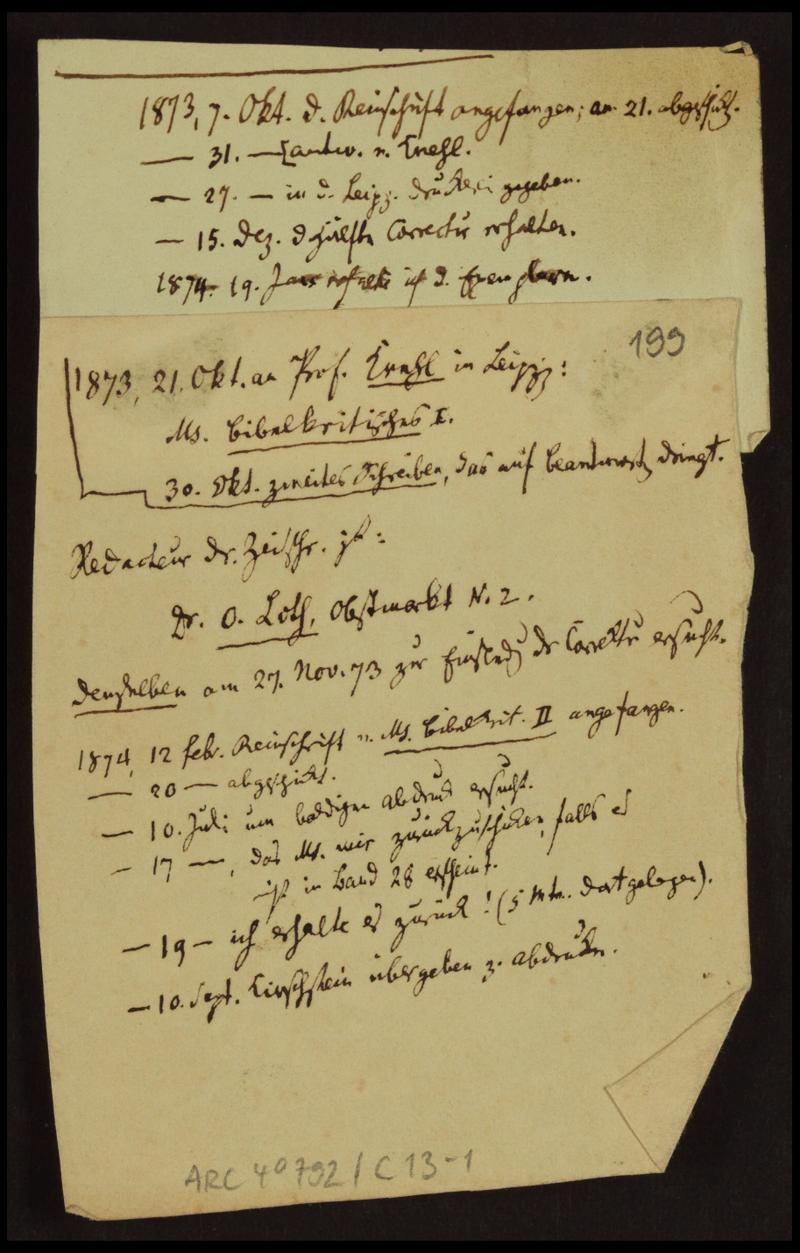 1873, 7. Okt. d. Reinschrift angefangen; am 21. abgeschickt.
— 31. — antw. v. Krehl.
— 27. — in d. Leipz. Druckerei gegeben.
— 15. Dez. d Hälfte Correctur erhalten.
1874. 19. Jan erhalte ich d. Exemplare.
199
1873, 21. Okt. an Prof. Krehl in Leipzig:
Ms. Bibelkritisches I.
30. Okt. zweites Schreiben, das auf Beantwortg dringt.
Redacteur dr. Zeitschr. ist:
Dr. O. Loth, Obstmarkt N. 2.
Denselben am 27. Nov. 73 zur Einsendg dr Correktur ersucht.
1874, 12 Febr. Reinschrift v. Ms. Bibelkrit. II angefangen.
— 20 — abgeschickt.
— 10. Juli um baldigen Abdruck ersucht.
— 17 —, das Ms. mir zurückzuschicken, falls es
in Band 28 erscheint.
— 19 — ich erhalte es zurück! (5 Mte. dort gelegen).
— 10. Sept. Kirschstein übergeben z. Abdrucken.
ARC 4° 792 / C 13-1